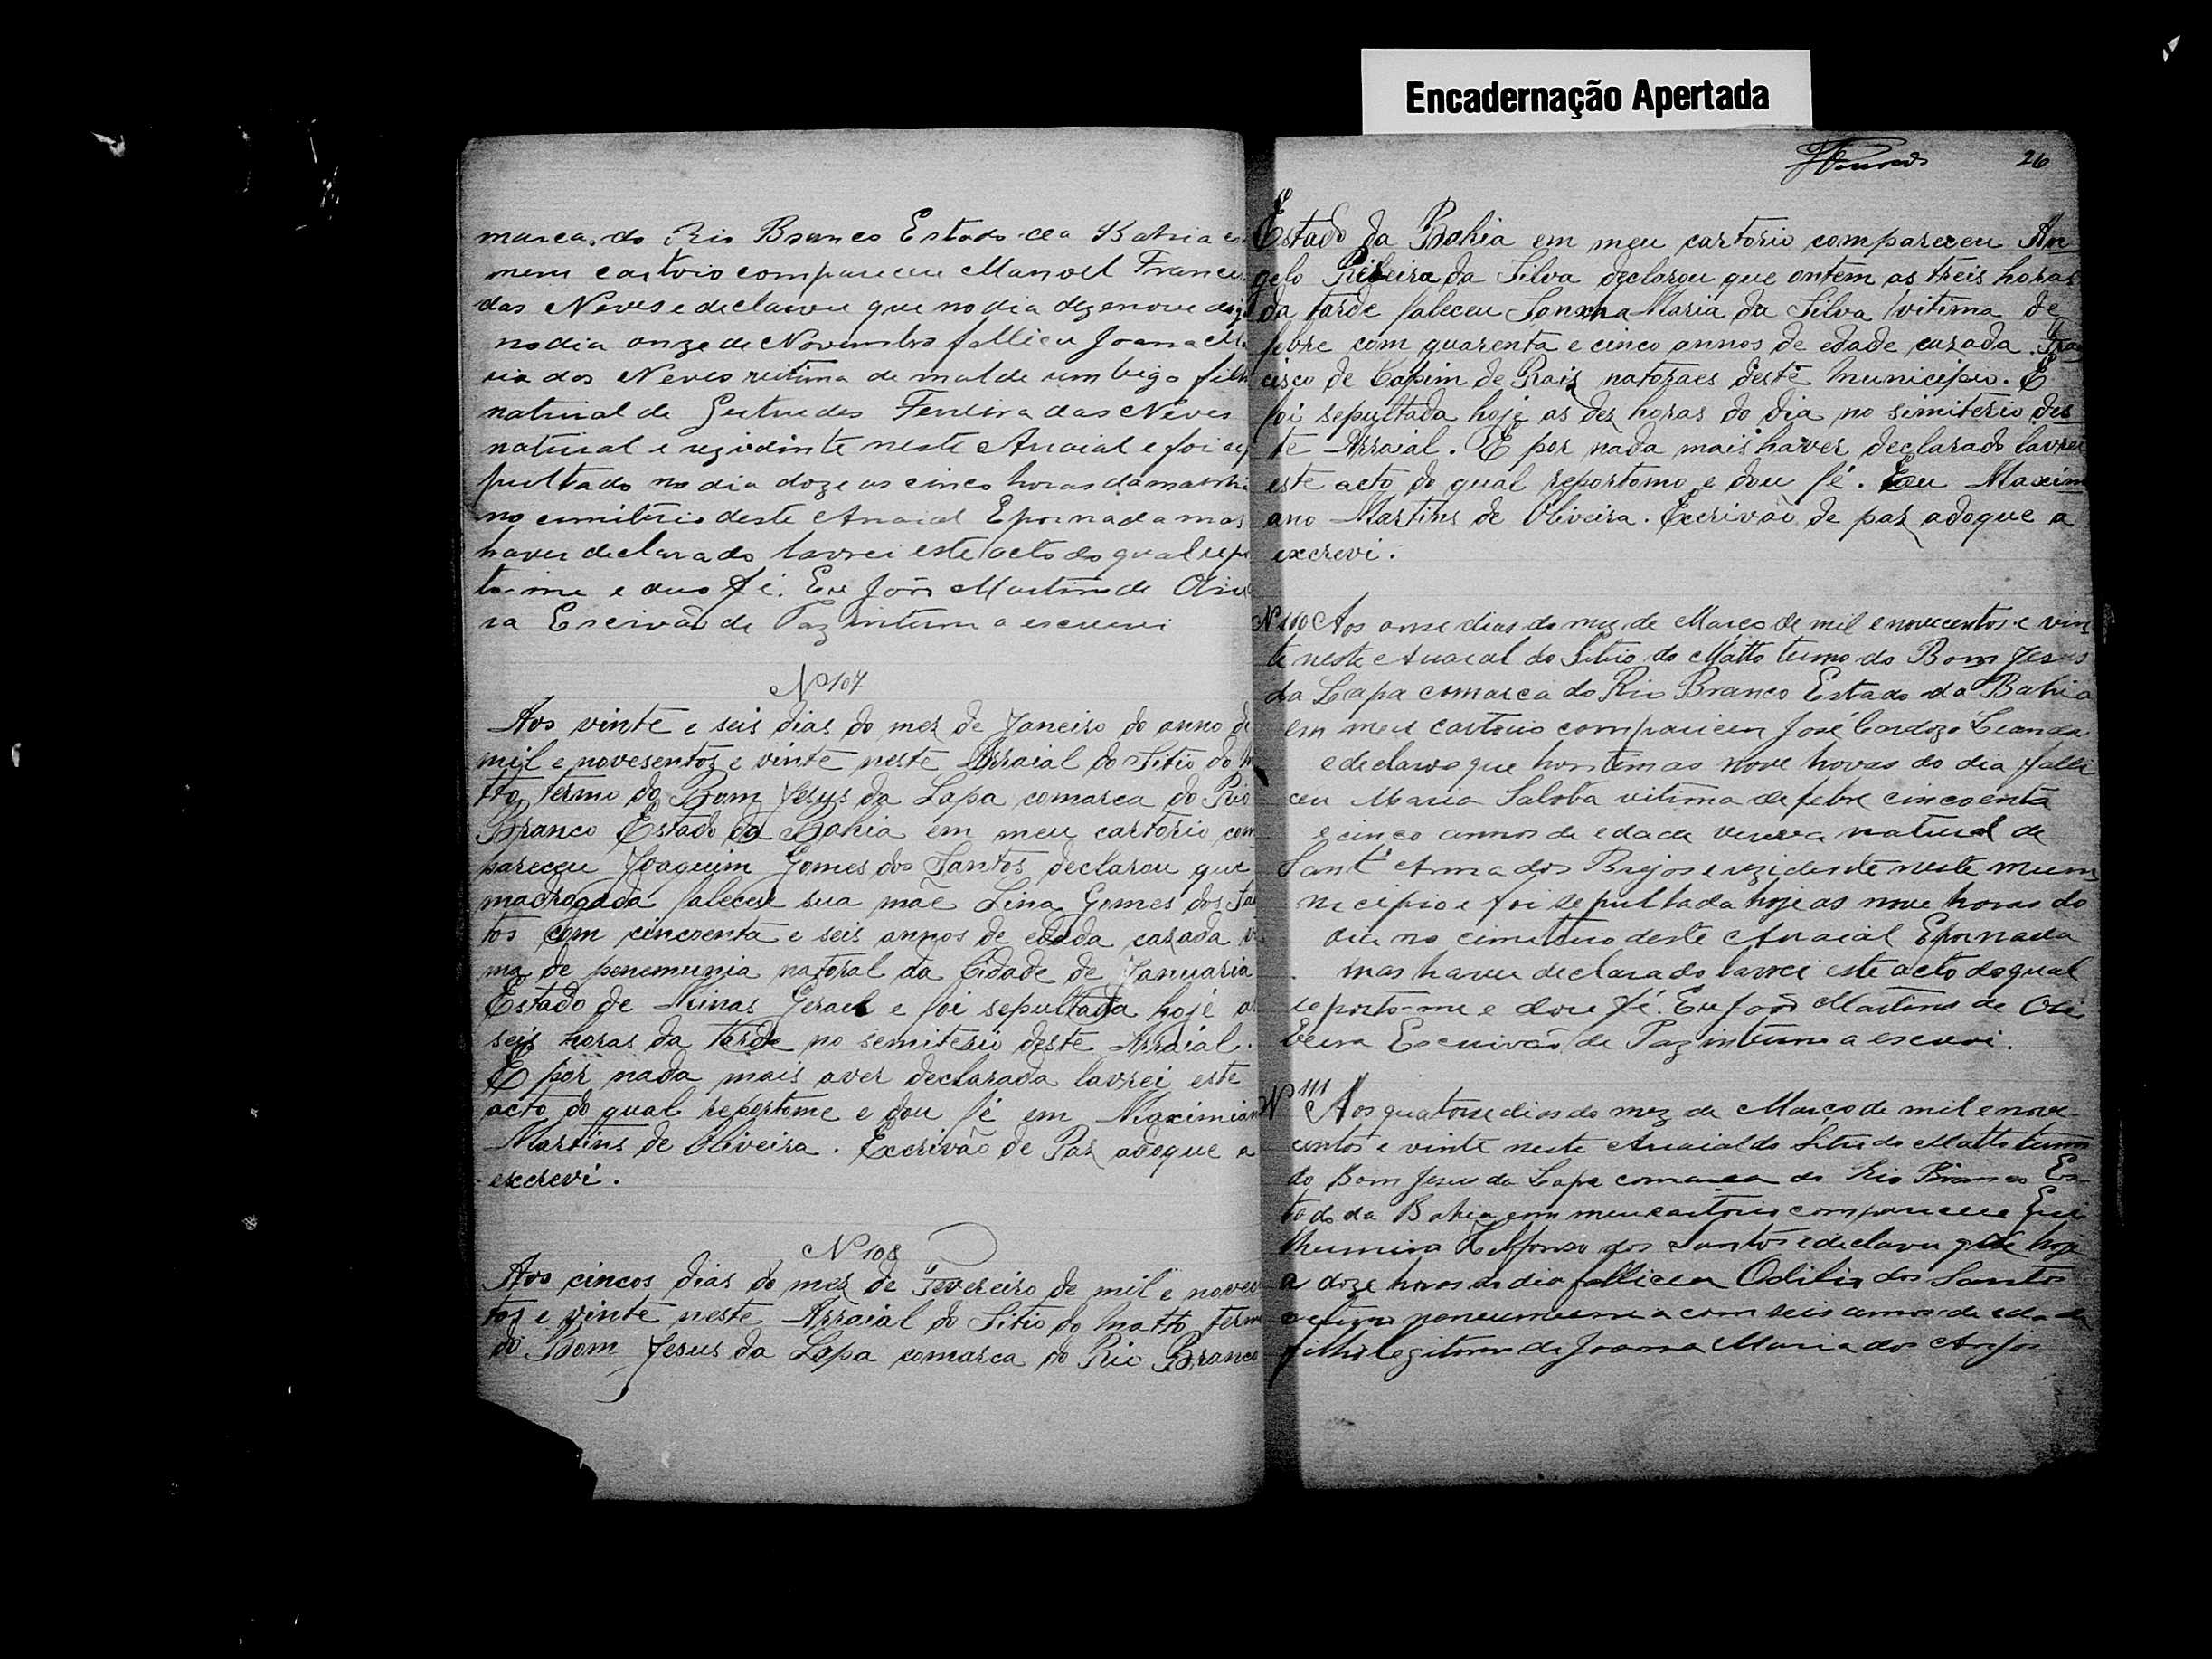 Encadernação Apertada
26
marca do Rio Branco Estado da Bahia e
meu cartorio compareceu Manoel Franci
das Neves e declarou que no dia dezenove digo
no dia onze de Novembro falliceu Joanna Ma
ria das Neves vitima de mal de umbigo filh
natural de Gertrudes Ferreira das Neves
natural e rezidinte neste Arraial e foi se
pultado no dia doze as cinco horas da manhã
no cimiterio deste Arraial E por nada mas
haver declarado lavrei este acto do qual repor
to-me e dou fé. Eu João Martins de Olivei
ra Escrivão de Paz interino a escrevi
Nº 107
Aos vinte e seis dias do mez de Janeiro do anno de
mil e novesentos e vinte neste Arraial do Sitio do M
tto, termo do Bom Jesus da Lapa comarca do Rio
Branco Estado da Bahia em meu cartorio com
pareceu Joaquim Gomes dos Santos declarou que
madrogada faleceu sua mãe Lina Gomes dos San
tos com cincoenta e seis annos de edada cazada vi
ma de penemunia natoral da Cidade de Januaria
Estado de Minas Geraes e foi sepultada hojé as
seis horas da tarde no semiterio deste Arraial.
E por nada mais aver declarada lavrei este
acto do qual reportome e dou fé em Maximian
Martins de Oliveira. Excrivão de Paz adoque a
escrevi.
Nº 108
Aos cincos dias do mez de Fevereiro de mil e noven
tos e vinte neste Arraial do Sitio do Matto termo
do Bom Jesus da Lapa comarca do Rio Branco
Estado da Bahia em meu cartorio compareceu An
gelo Ribeira da Silva declarou que ontem as treis horas
da tarde faleceu Maria da Silva vitima de
febre com quarenta e cinco annos de edade cazada. Fran
cisco de Capim de Rais natoraes deste municipio. E
foi sepultada hoje as dez horas do dia no simiterio des
te Arraial. E por nada mais haver declarado lavrei
este acto do qual reportomo e dou fé. Eou Maxim
ano Martins de Oliveira. Excrivão de paz adoque a
excrevi.
Nº 110 Aos onse dias do mez de Março de mil e novecentos e vin
te neste Arraial do Sitio do Matto termo do Bom Jesus
da Lapa comarca do Rio Branco Estado da Bahia
em meu cartorio compariceu José Cardozo
e declarou que hontem as nove horas do dia falli
ceu Maria Saloba vitima de febre cincoenta
e cinco annos de edade viuva natural de
Sant'Anna dos Brejos e rezidente neste muni
nicipio e foi sepultada hoje as nove horas do
dia no cimiterio deste Arraial E por nada
mas haver declarado lavrei este acto do qual
reporto-me e dou fé. Eu João Martins de Oli
veira Escrivão de Paz interino a escrevi.
Nº 111 Aos quatorse dias do mez de Março de mil e nove
centos e vinte neste Arraial do Sitio do Matto termo
do Bom Jesus da Lapa comarca do Rio Branco Es
tado da Bahia em meu cartorio compareceu Gui
lhermino Ildfonso dos Santos e declarou que hoje
a doze horas do dia falliceu Odilio dos Santos
vitima poneumunia com seis annos de edade
filho legitimo de Joanna Maria dos Anjos